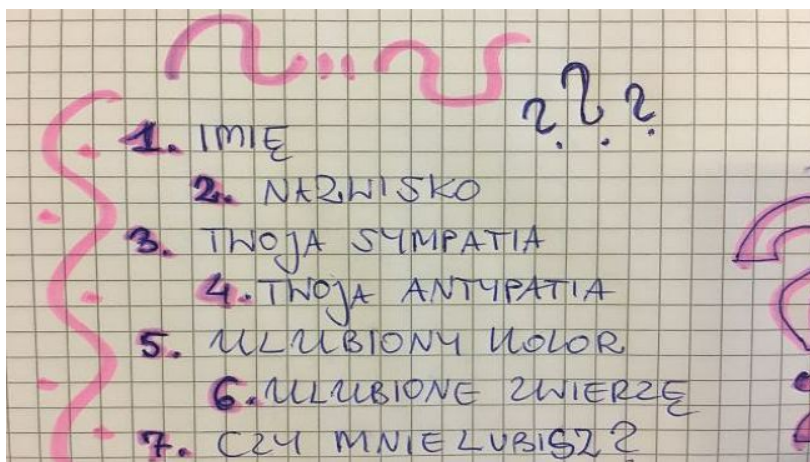 ???
1. IMIĘ
2. NAZWISKO
3. TWOJA SYMPATIA
4. TWOJA ANTYPATIA
5. ULUBIONY KOLOR
6. ULUBIONE ZWIERZĘ
7. CZY MNIE LUBISZ?